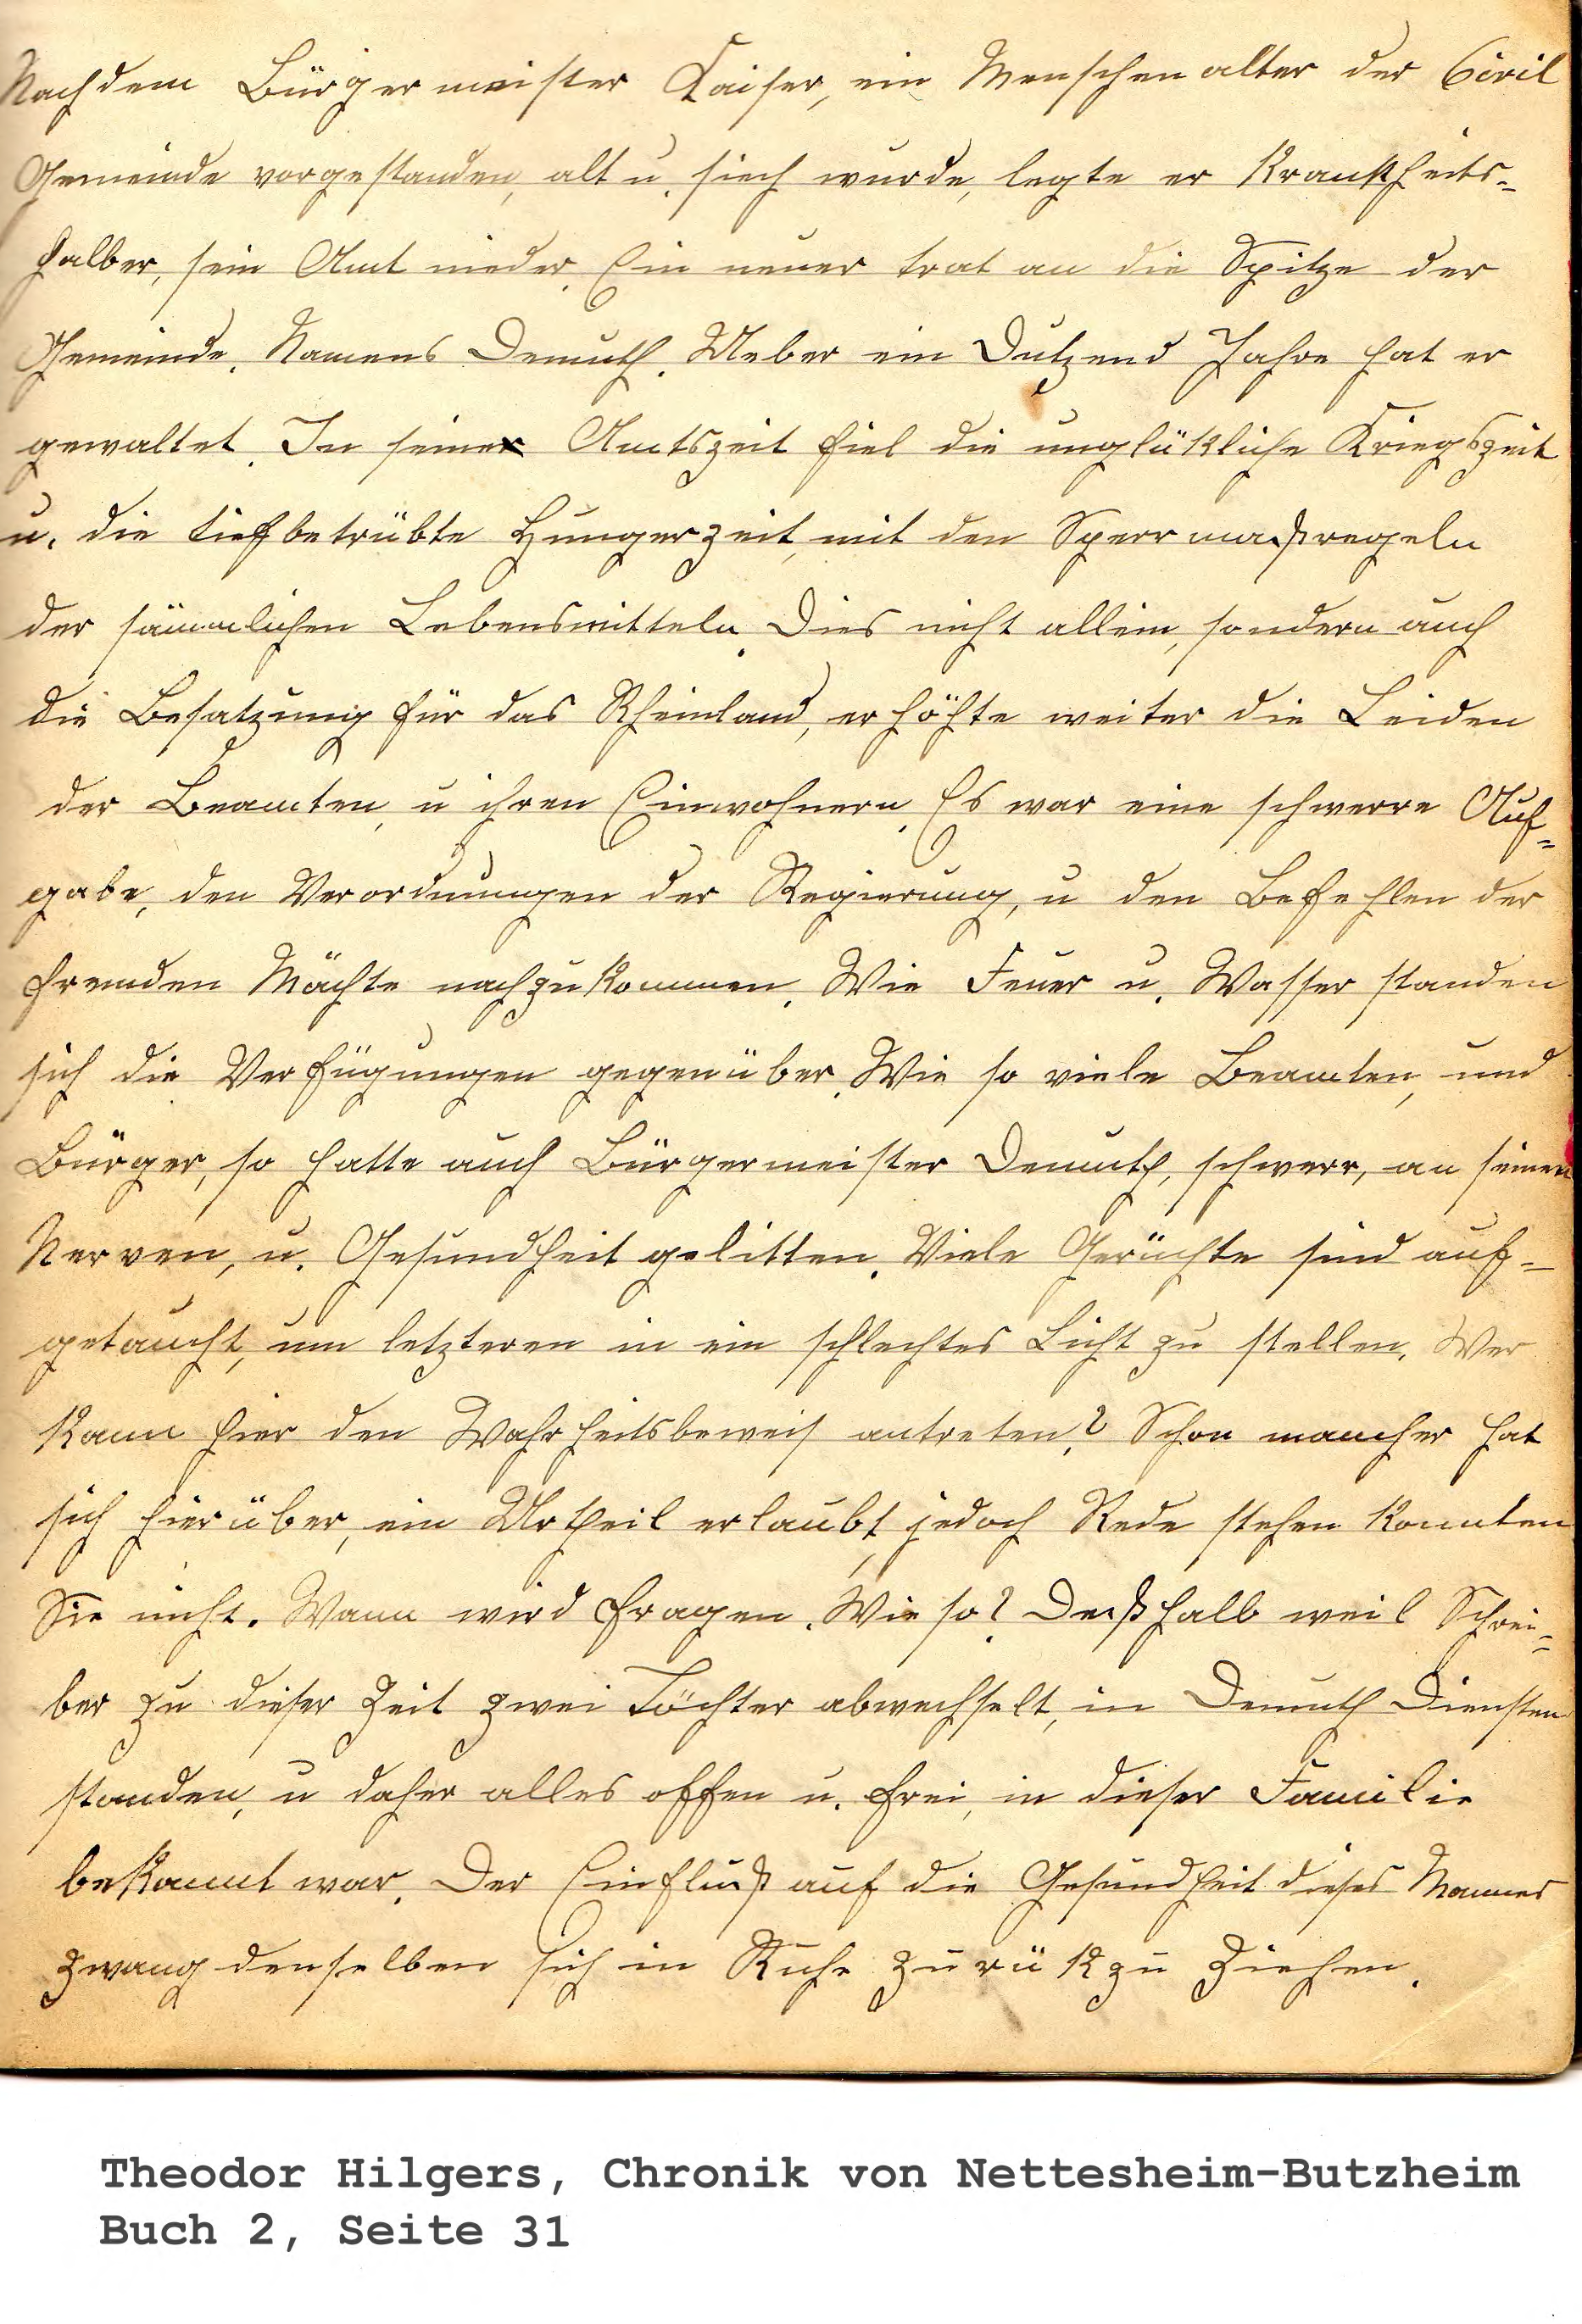 Nachdem Bürgermeister Kaiser, ein Menschenalter der Civil
Gemeinde vorgestanden, alt u. siech wurde, legte er Krankheits-
halber, sein Amt nieder. Ein neuer trat an die Spitze der
Gemeinde. Namens Demuth. Ueber ein Dutzend Jahre hat er
gewaltet. In seiner Amtszeit fiel die unglükliche Kriegszeit
u. die tiefbetrübte Hungerzeit, mit den Sperrmaßregeln
der sämmlichen Lebensmitteln. Dies nicht allein, sondern auch
die Besatzung für das Rheinland, erhöhte weiter die Leiden
der Beamten, u ihren Einwohnern. Es war eine schwerre Auf-
gabe, den Verordnungen der Regierung, u den Befehlen der
fremden Mächte nachzukommen. Wie Feuer u. Wasser standen
sich die Verfügungen gegenüber. Wie so viele Beamten, und
Bürger, so hatte auch Bürgermeister Demuth, schwerr, an seinen
Nerven, u. Gesundheit gelitten. Viele Gerüchte sind auf-
getaucht, um letzteren in ein schlechtes Licht zu stellen. Wer
kann hier den Wahrheitsbeweis antreten? Schon mancher hat
sich hierüber, ein Urtheil erlaubt, jedoch Rede stehen konnten
Sie nicht. Mann wird fragen. Wieso? Deßhalb weil Schrei-
ber zu dieser Zeit zwei Töchter abwechselt, in Demuth Diensten
standen, u daher alles offen u. frei, in dieser Familie
bekannt war. Der Einfluß auf die Gesundheit dieses Mannes
zwang denselben sich in Ruhe zurükzu Ziehen.
Theodor Hilgers, Chronik von Nettesheim-Butzheim
Buch 2, Seite 31